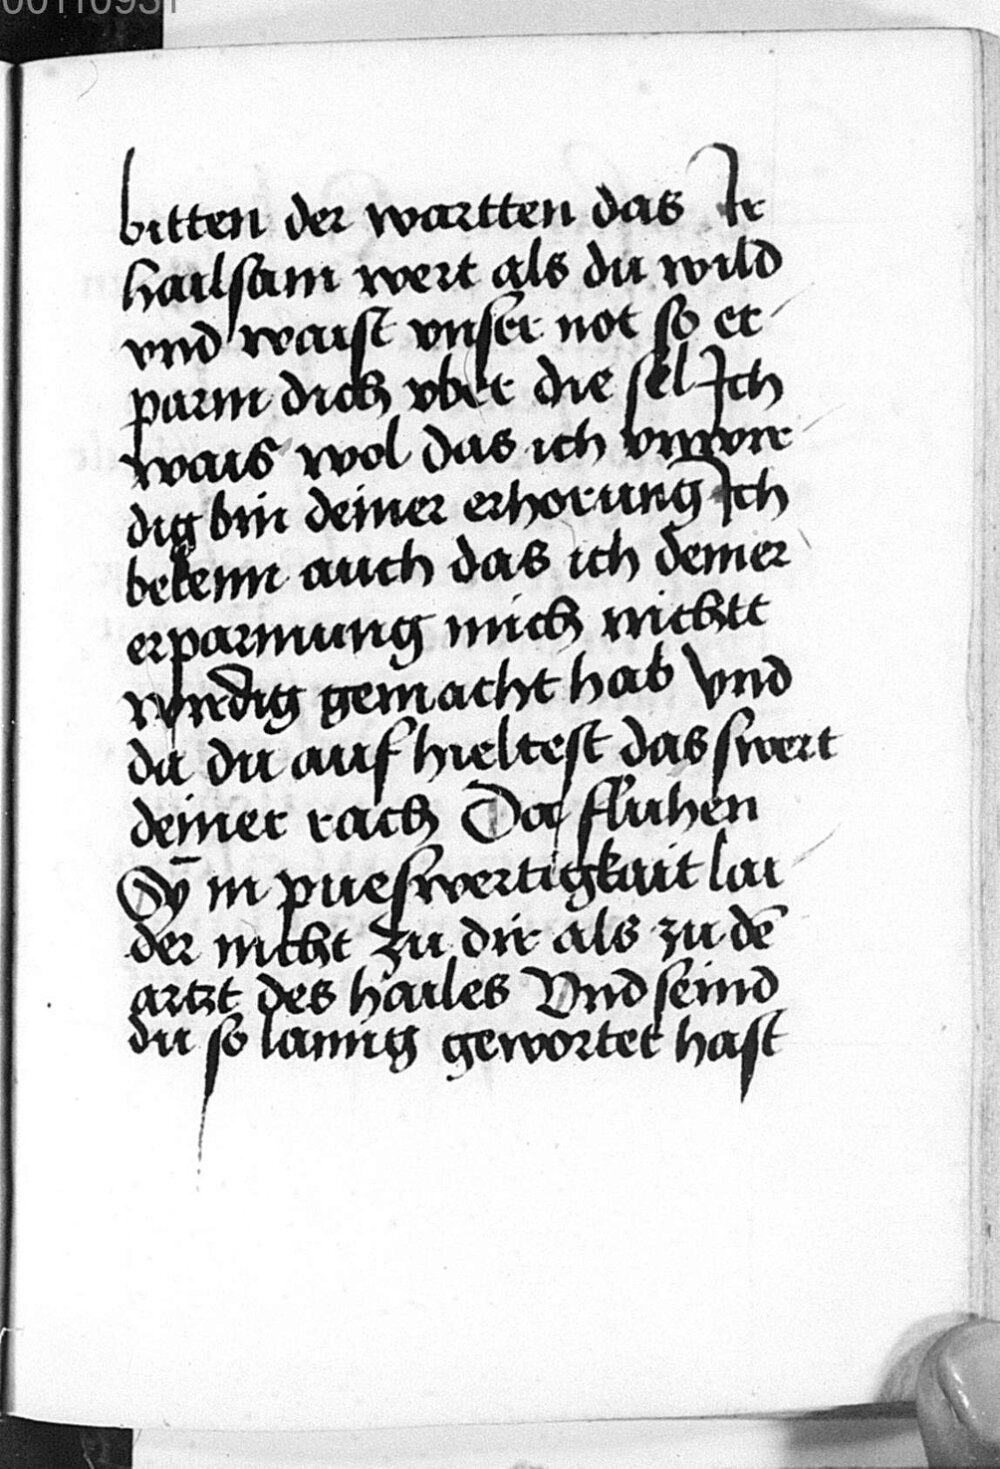 00110931
bitten der wartten das Ir
hailsam wert als du wild
vnd waist vnser not so er
parm dich vber die sel Ich
wais wol das ich vnwir
dig bin deiner erhorung Ich
bekenn auch das ich deiner
erparmung mich nichtt
wirdig gemacht hab Vnd
da du auf hieltest das swert
deiner rach Da fluhen
Sy in pueswertigkait lai
der nicht zu dir als zu dē
artzt des hailes Vnd seind
du so lanng gewortet hast